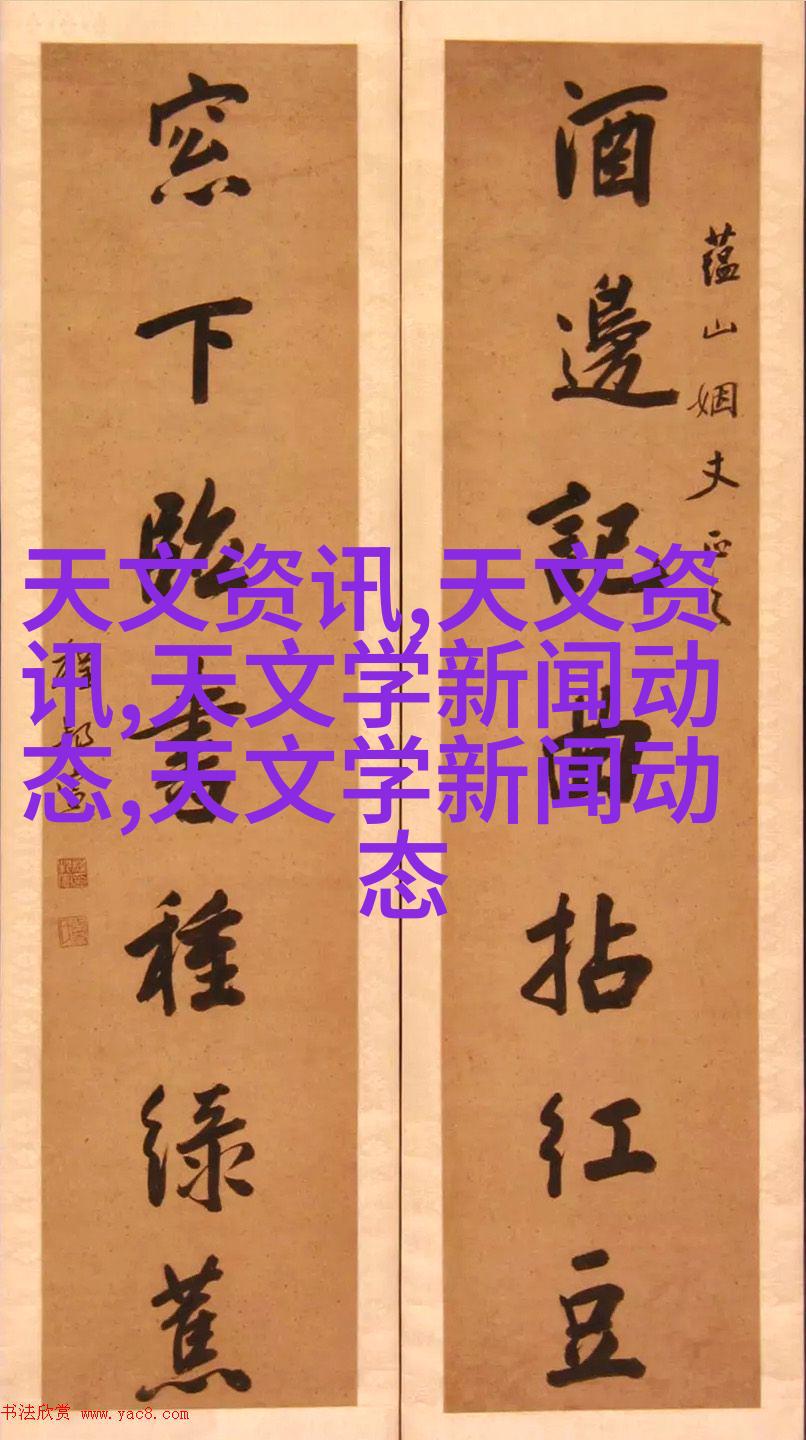 酒邊記曲拈紅豆
蕴山姻丈正之
窓下臨書種緑蕉
天文资讯,天文资
讯,天文学新闻动
态,天文学新闻动
态
书法欣赏 www.yac8.com